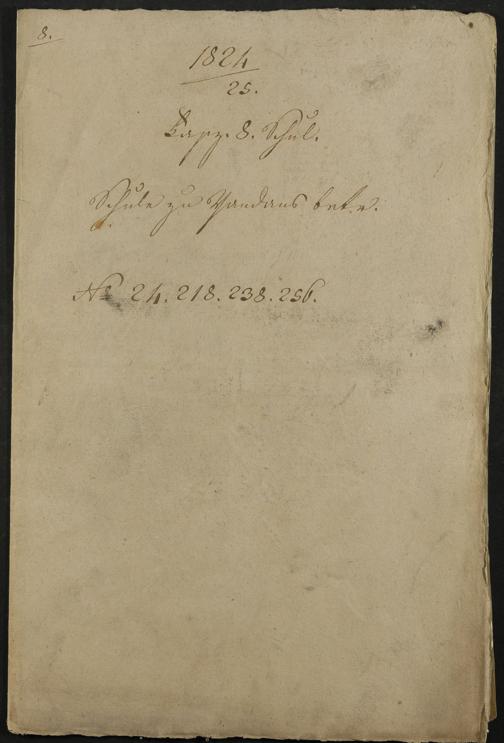 8.
1824
25.
Fasz. 8. Schul.
Schule zu Vandans betr.
No 24. 218. 238. 256.